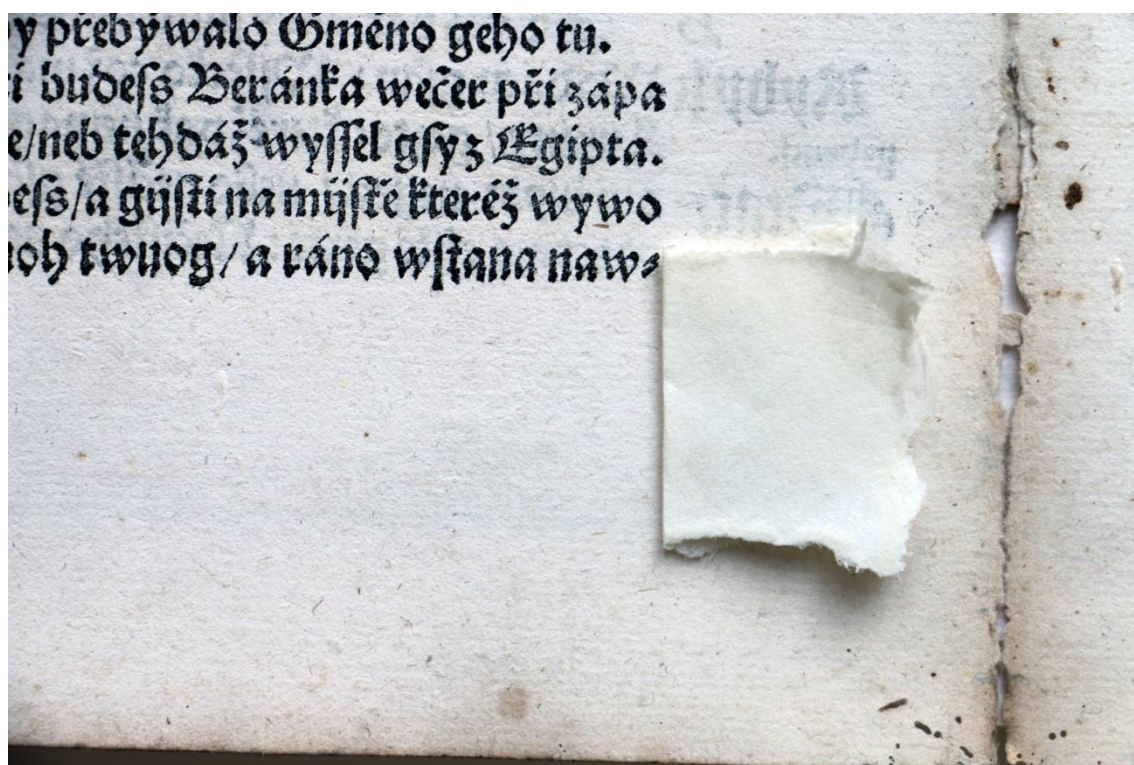 y přebýwalo Gméno geho tu.
i budeſs Beránka wečer při zápa
e/neb tehdáž wyſſel gſy z Egipta.
eſs/a gijſti na mijſtě kteréž wywo
oh twuog/ a ráno wſtana naw⸗